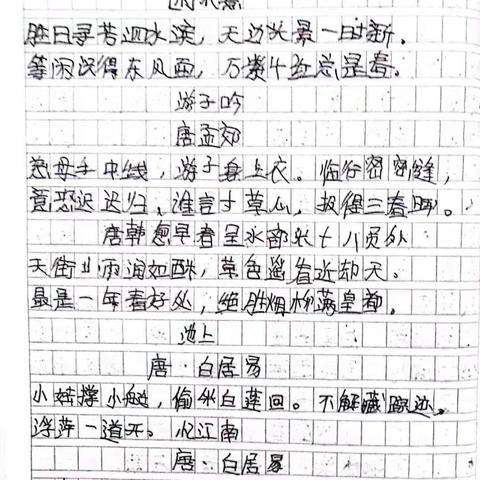 胜日寻芳泗水滨，无边光景一时新。
等闲识得东风面，万紫千红总是春。
游子吟
唐孟郊
慈母手中线，游子身上衣。临行密密缝，
意恐迟迟归。谁言寸草心，报得三春晖。
唐韩愈早春呈水部张十八员外
天街小雨润如酥，草色遥看近却无。
最是一年春好处，绝胜烟柳满皇都。
池上
唐·白居易
小娃撑小艇，偷采白莲回。不解藏踪迹，
浮萍一道开。忆江南
唐·白居易